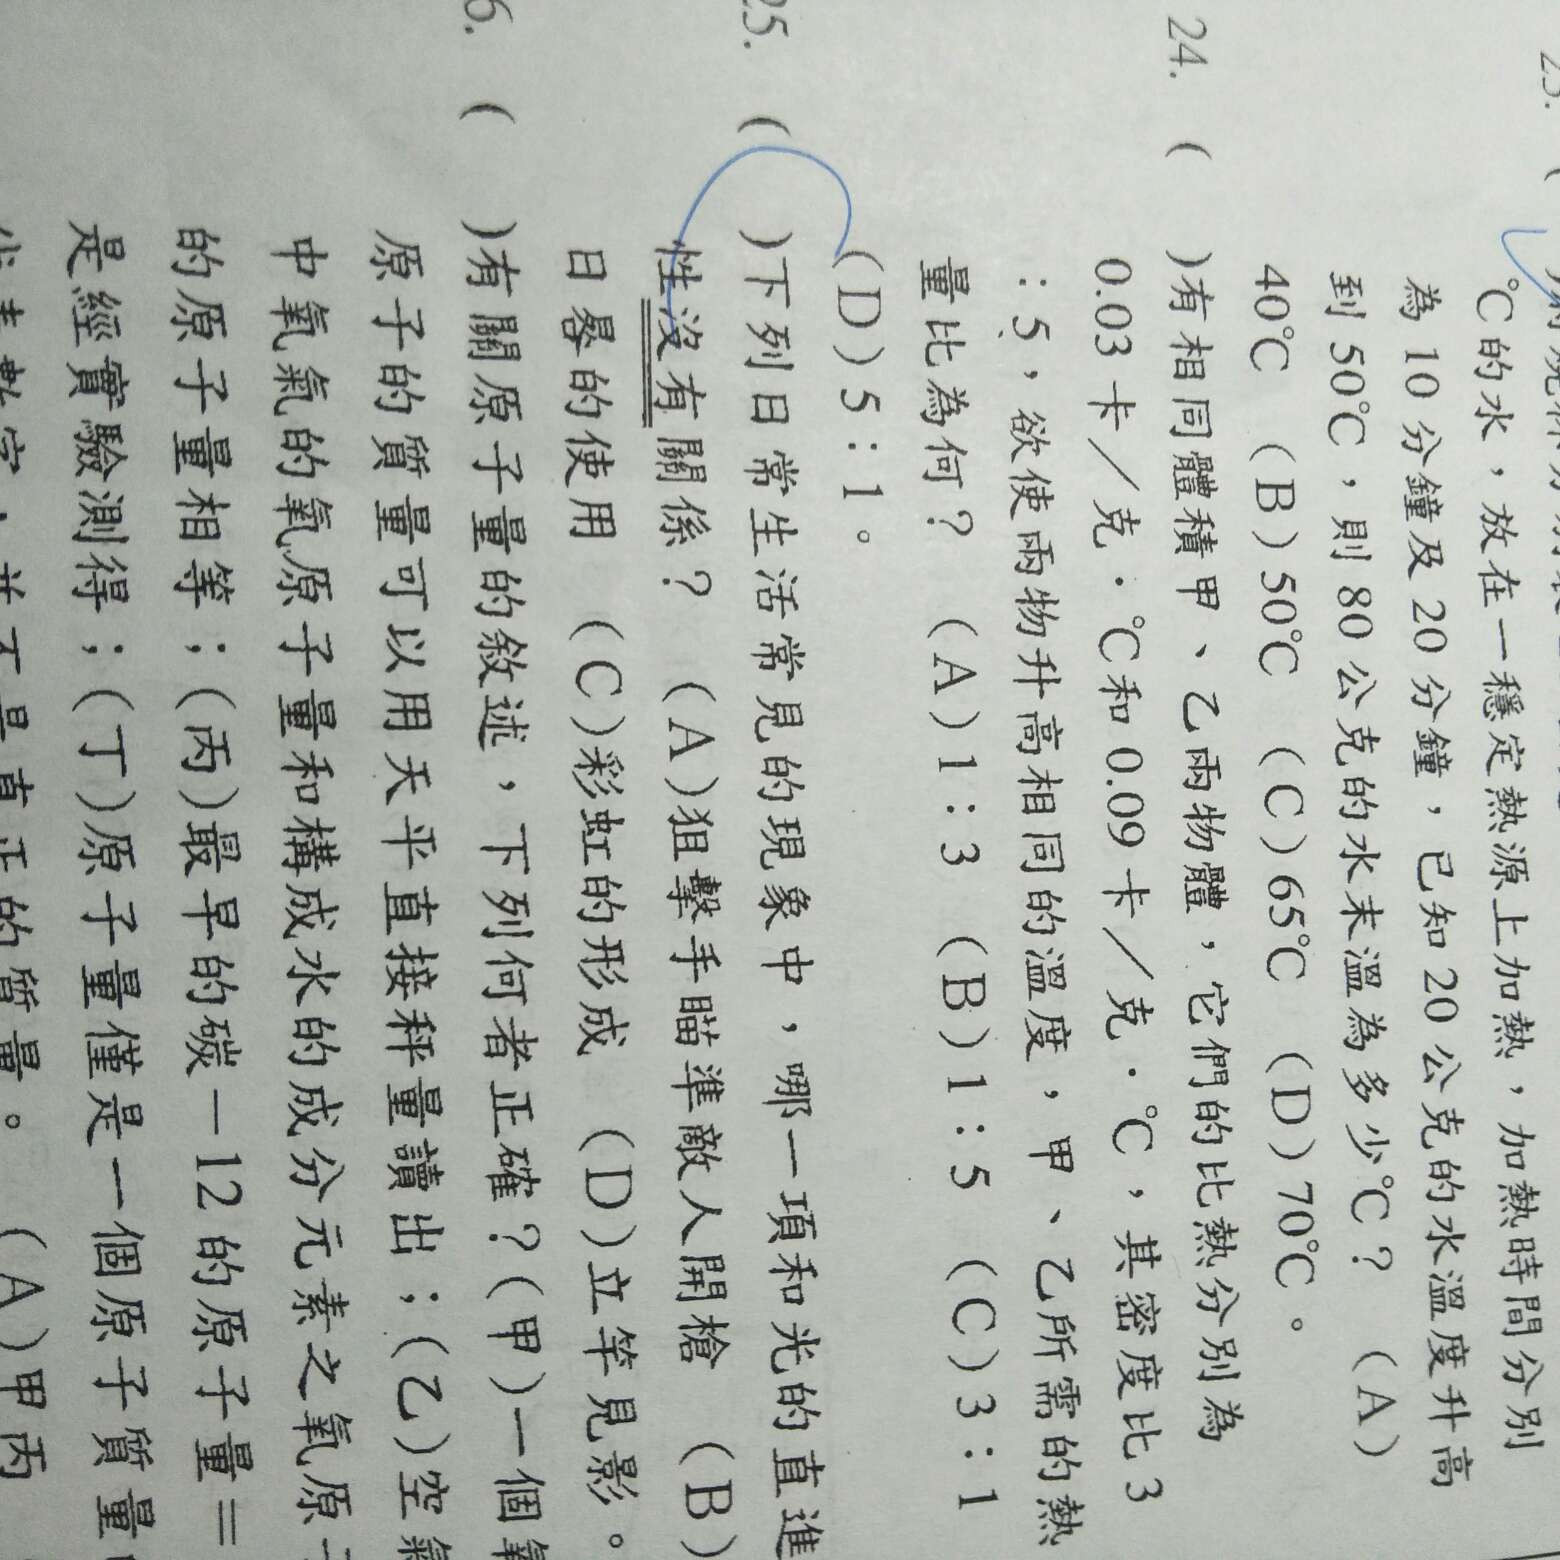 ℃的水，放在一穩定熱源上加熱，加熱時間分別
為 10 分鐘及 20 分鐘，已知 20 公克的水溫度升高
到 50℃，則 80 公克的水末溫為多少℃？ (A)
40℃ (B)50℃ (C)65℃ (D)70℃。
24. ( )有相同體積甲、乙兩物體，它們的比熱分別為
0.03 卡／克．℃和 0.09 卡／克．℃，其密度比 3
：5，欲使兩物升高相同的溫度，甲、乙所需的熱
量比為何？ (A)1：3 (B)1：5 (C)3：1
(D)5：1。
25. ( )下列日常生活常見的現象中，哪一項和光的直進
性沒有關係？ (A)狙擊手瞄準敵人開槍 (B)
日晷的使用 (C)彩虹的形成 (D)立竿見影。
6. ( )有關原子量的敘述，下列何者正確？(甲)一個
原子的質量可以用天平直接秤量讀出；(乙)空
中氧氣的氧原子量和構成水的成分元素之氧原
的原子量相等；(丙)最早的碳－12 的原子量＝
是經實驗測得；(丁)原子量僅是一個原子質量
數字，並不是真正的質量。 (A)甲丙